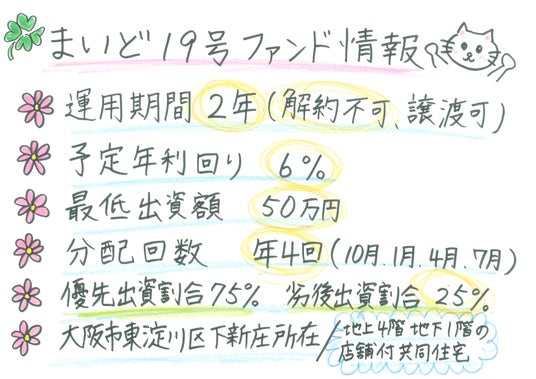 まいど19号ファンド情報
運用期間 2年(解約不可、譲渡可)
予定年利回り 6%
最低出資額 50万円
分配回数 年4回(10月.1月.4月.7月)
優先出資割合75% 劣後出資割合 25%
大阪市東淀川区下新庄所在/地上4階 地下1階の
店舗付共同住宅